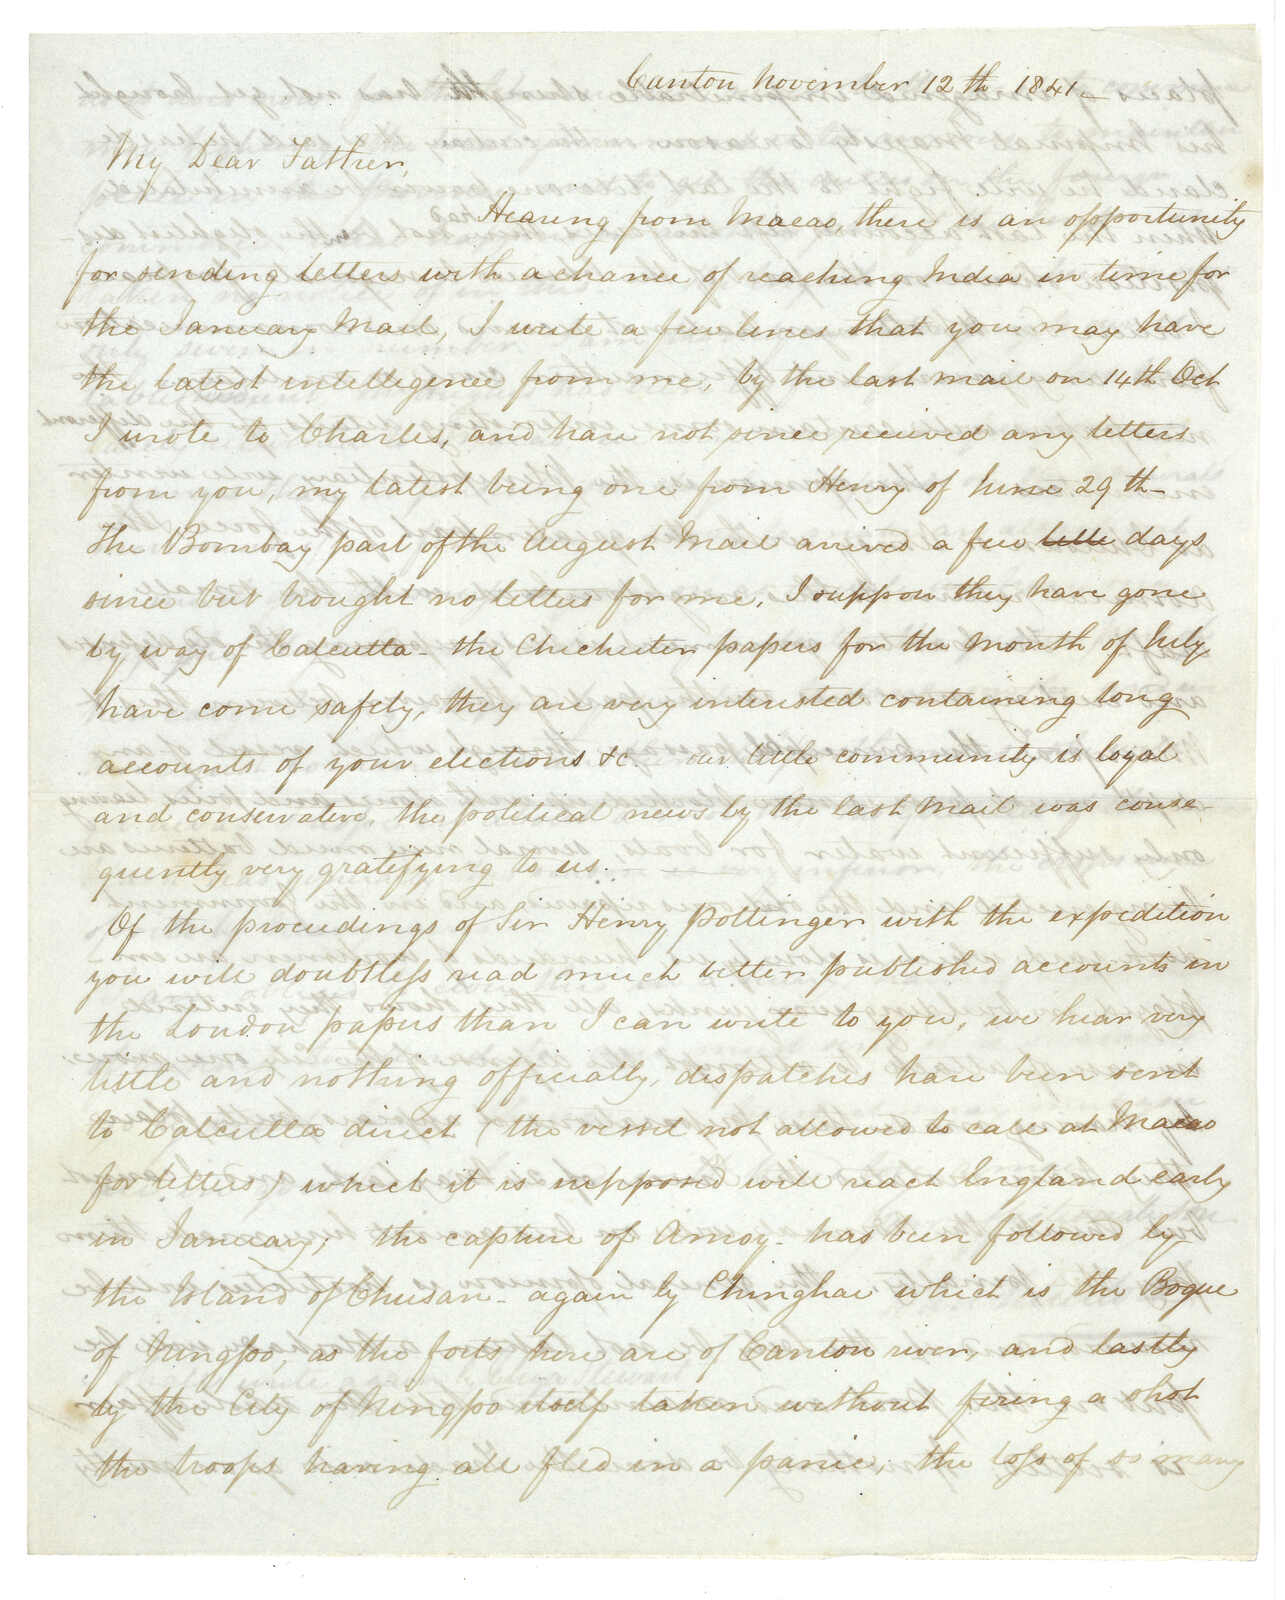 Canton November 12th 1841_
My Dear Father,
Hearing from Macao, there is an opportunity
for sending letters with a chance of reaching India in time for
the January Mail, I write a few lines that you may have
the latest intelligence from me, by the last mail on 14th Oct
I wrote to Charles, and have not since received any letters
from you, my latest being one from Henry of June 29th_
The Bombay part of the August Mail arrived a few little days
since but brought no letters for me, I suppose they have gone
by way of Calcutta_ the Chichester papers for the Month of July
have come safely, they are very interested containing long
accounts of your elections &c. our little community is loyal
and conservative, the political news by the last Mail was conse-
quently very gratifying to us. _ _
Of the proceedings of Sir Henry Pottinger with the expedition
you will doubtless read much better published accounts in
the London papers than I can write to you, we hear very
little and nothing officially, dispatches have been sent
to Calcutta direct (the vessel not allowed to call at Macao
for letters) which it is supposed will reach England early
in January; the capture of Amoy_ has been followed by
the Island of Chusan_ again by Chinghae which is the Bogue
of Ningpo, as the forts here are of Canton river, and lastly
by the City of Ningpo itself taken without firing a shot
the troops having all fled in a panic, the loss of so many